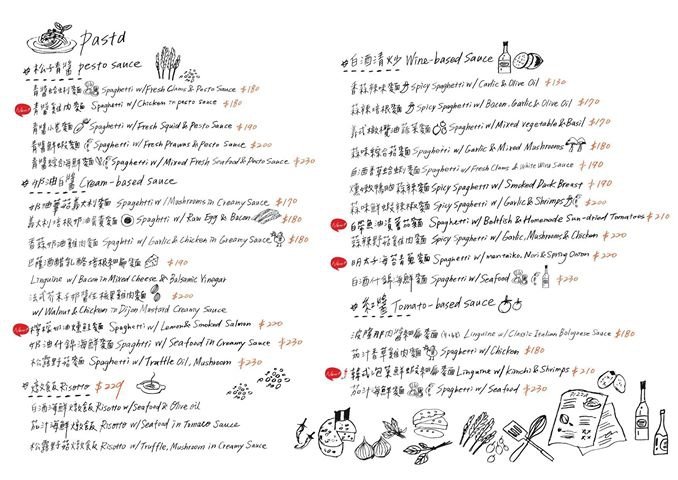 pasta
松子青醬 pesto sauce
青醬蛤蜊麵 Spaghetti w/Fresh Clams & Pesto Sauce $180
New! 青醬雞肉麵 Spaghetti w/Chicken in pesto sauce $180
青醬小卷麵 Spaghetti w/Fresh Squid & Pesto Sauce $190
青醬鮮蝦麵 Spaghetti w/Fresh Prawns & Pesto Sauce $200
青醬綜合海鮮麵 Spaghetti w/Mixed Fresh Seafood & Pesto Sauce $230
奶油白醬 Cream-based sauce
奶油蘑菇義大利麵 Spaghetti w/Mushrooms in Creamy Sauce $170
義大利培根奶油蛋黃麵 Spaghetti w/ Raw Egg & Bacon $180
香蒜奶油雞肉麵 Spaghetti w/ Garlic & Chicken in Creamy Sauce $180
巴薩米醋乳酪培根細扁麵 $190
Linguine w/Bacon in Mixed Cheese & Balsamic Vinegar
法式芥末籽 雞肉麵 $200
w/Walnut & Chicken in Dijon Mustard Creamy Sauce
New! 檸檬奶油燻鮭麵 Spaghetti w/ Lemon & Smoked Salmon $220
奶油什錦海鮮麵 Spaghetti w/ Seafood in Creamy Sauce $230
松露野菇麵 Spaghetti w/ Truffle Oil, Mushroom $230
燉飯 Risotto $229
白酒海鮮燉飯 Risotto w/Seafood & Olive oil
茄汁海鮮燉飯 Risotto w/Seafood in Tomato Sauce
松露野菇燉飯 Risotto w/Truffle, Mushroom in Creamy Sauce
白酒清炒 Wine-based Sauce
香蒜辣味麵 Spicy Spaghetti w/ Garlic & Olive Oil $130
蒜辣培根麵 Spicy Spaghetti w/ Bacon, Garlic & Olive Oil $170
義式橄欖油蔬菜麵 Spaghetti w/ Mixed Vegetable & Basil $170
蒜味綜合菇麵 Spaghetti w/ Garlic & Mixed Mushrooms $180
白酒香草蛤蜊麵 Spaghetti w/Fresh Clams & White Wine Sauce $190
煙燻鴨胸蒜辣麵 Spicy Spaghetti w/ Smoked Duck Breast $190
蒜味鮮蝦辣椒麵 Spicy Spaghetti w/ Garlic & Shrimps $200
New! 自製油漬番茄麵 Spaghetti w/ Beltfish & Homemade Sun-dried Tomatoes $210
蒜辣野菇雞肉麵 Spicy Spaghetti w/ Garlic, Mushrooms & Chicken $220
New! 明太子海苔青蔥麵 Spaghetti w/ mentaiko, Nori & Spring Onion $220
白酒什錦海鮮麵 Spaghetti w/ Seafood $230
紅醬 Tomato-based sauce
波隆那肉醬細扁麵 Linguine w/Classic Italian Bolognese Sauce $180
茄汁香草雞肉麵 Spaghetti w/ Chicken $180
New! 韓式泡菜鮮蝦細扁麵 Linguine w/ Kimchi & Shrimps $210
茄汁海鮮麵 Spaghetti w/ Seafood $230